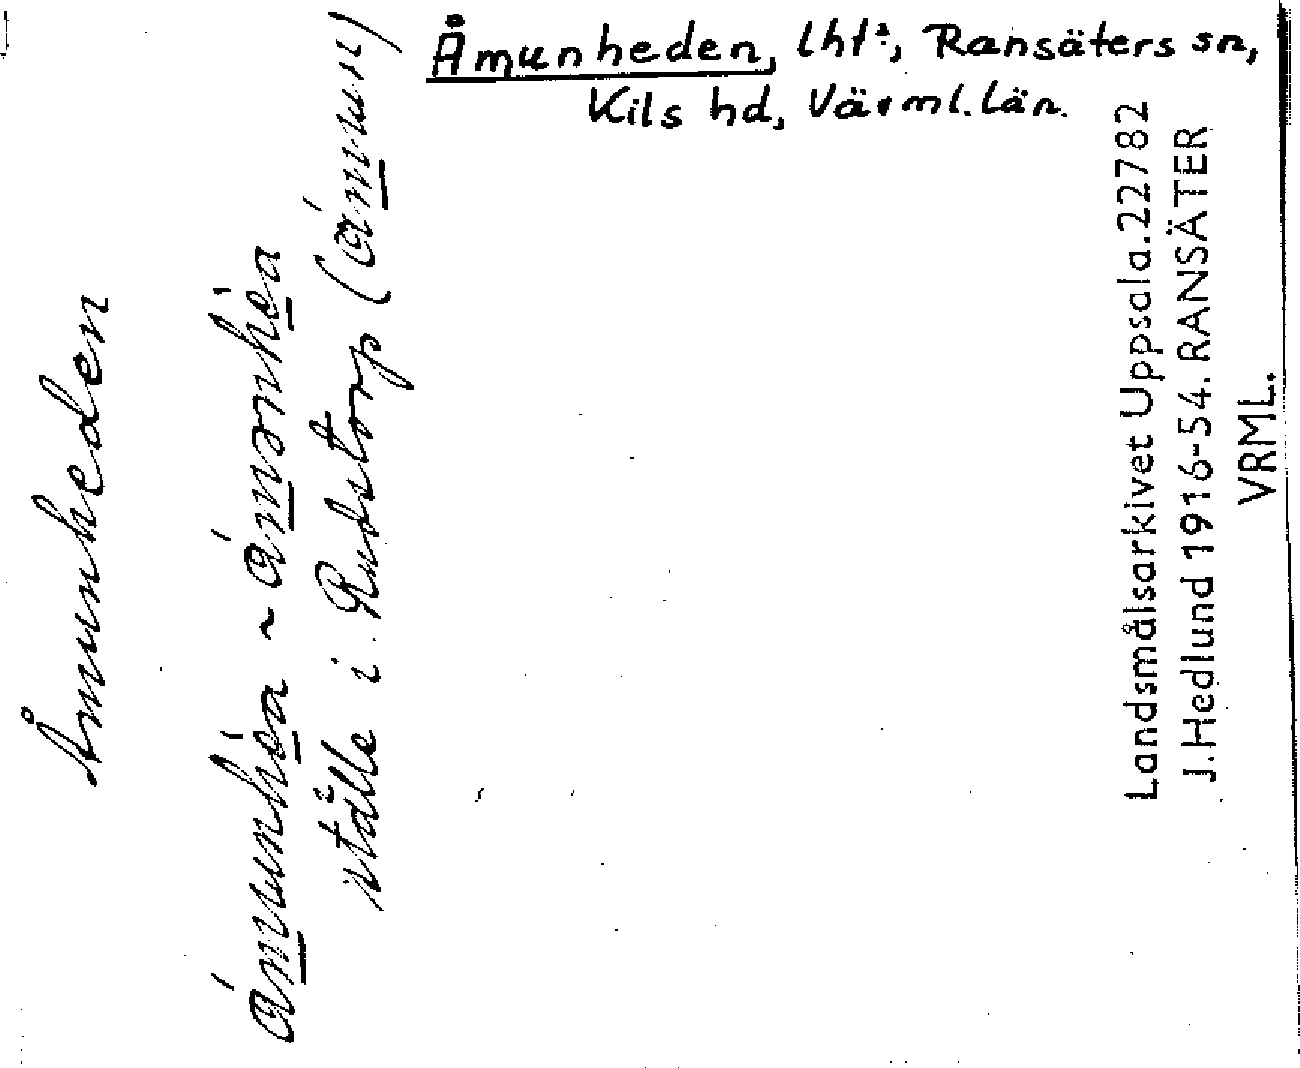 Åmunheden, lht², Ransäters sn,
Kils hd, Värml. län.
Åmunheden
ámunhèa ~ ámənhèa
ställe i Rudstorp (ámun)
Landsmålsarkivet Uppsala. 22782
J. Hedlund 1916-54. RANSÄTER
VRML.